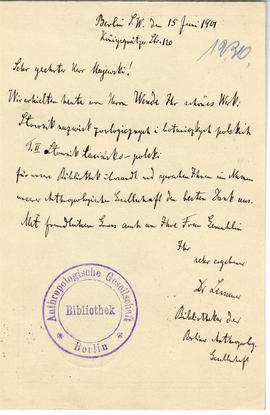 Berlin S.W. den 15 Juni 1901
Königgrätzer Str. 120
1930.
Sehr geehrter Herr Majewski!
Wir erhielten heute von Herrn Wende Ihr schönes Werk:
Słownik nazwisk zoologicznych i botanicznych polskich
T. II Słownik Łacińsko-polski
für unsere Bibliothek übersandt und sprechen Ihnen im Namen
unserer Anthropologischen Gesellschaft den besten Dank aus.
Mit freundlichem Gruss auch an Ihre Frau Gemahlin
Ihr
sehr ergebener
Dr
Bibliothekar der
Berliner Anthropolog.
Gesellschaft
Anthropologische Gesellschaft
Bibliothek
Berlin